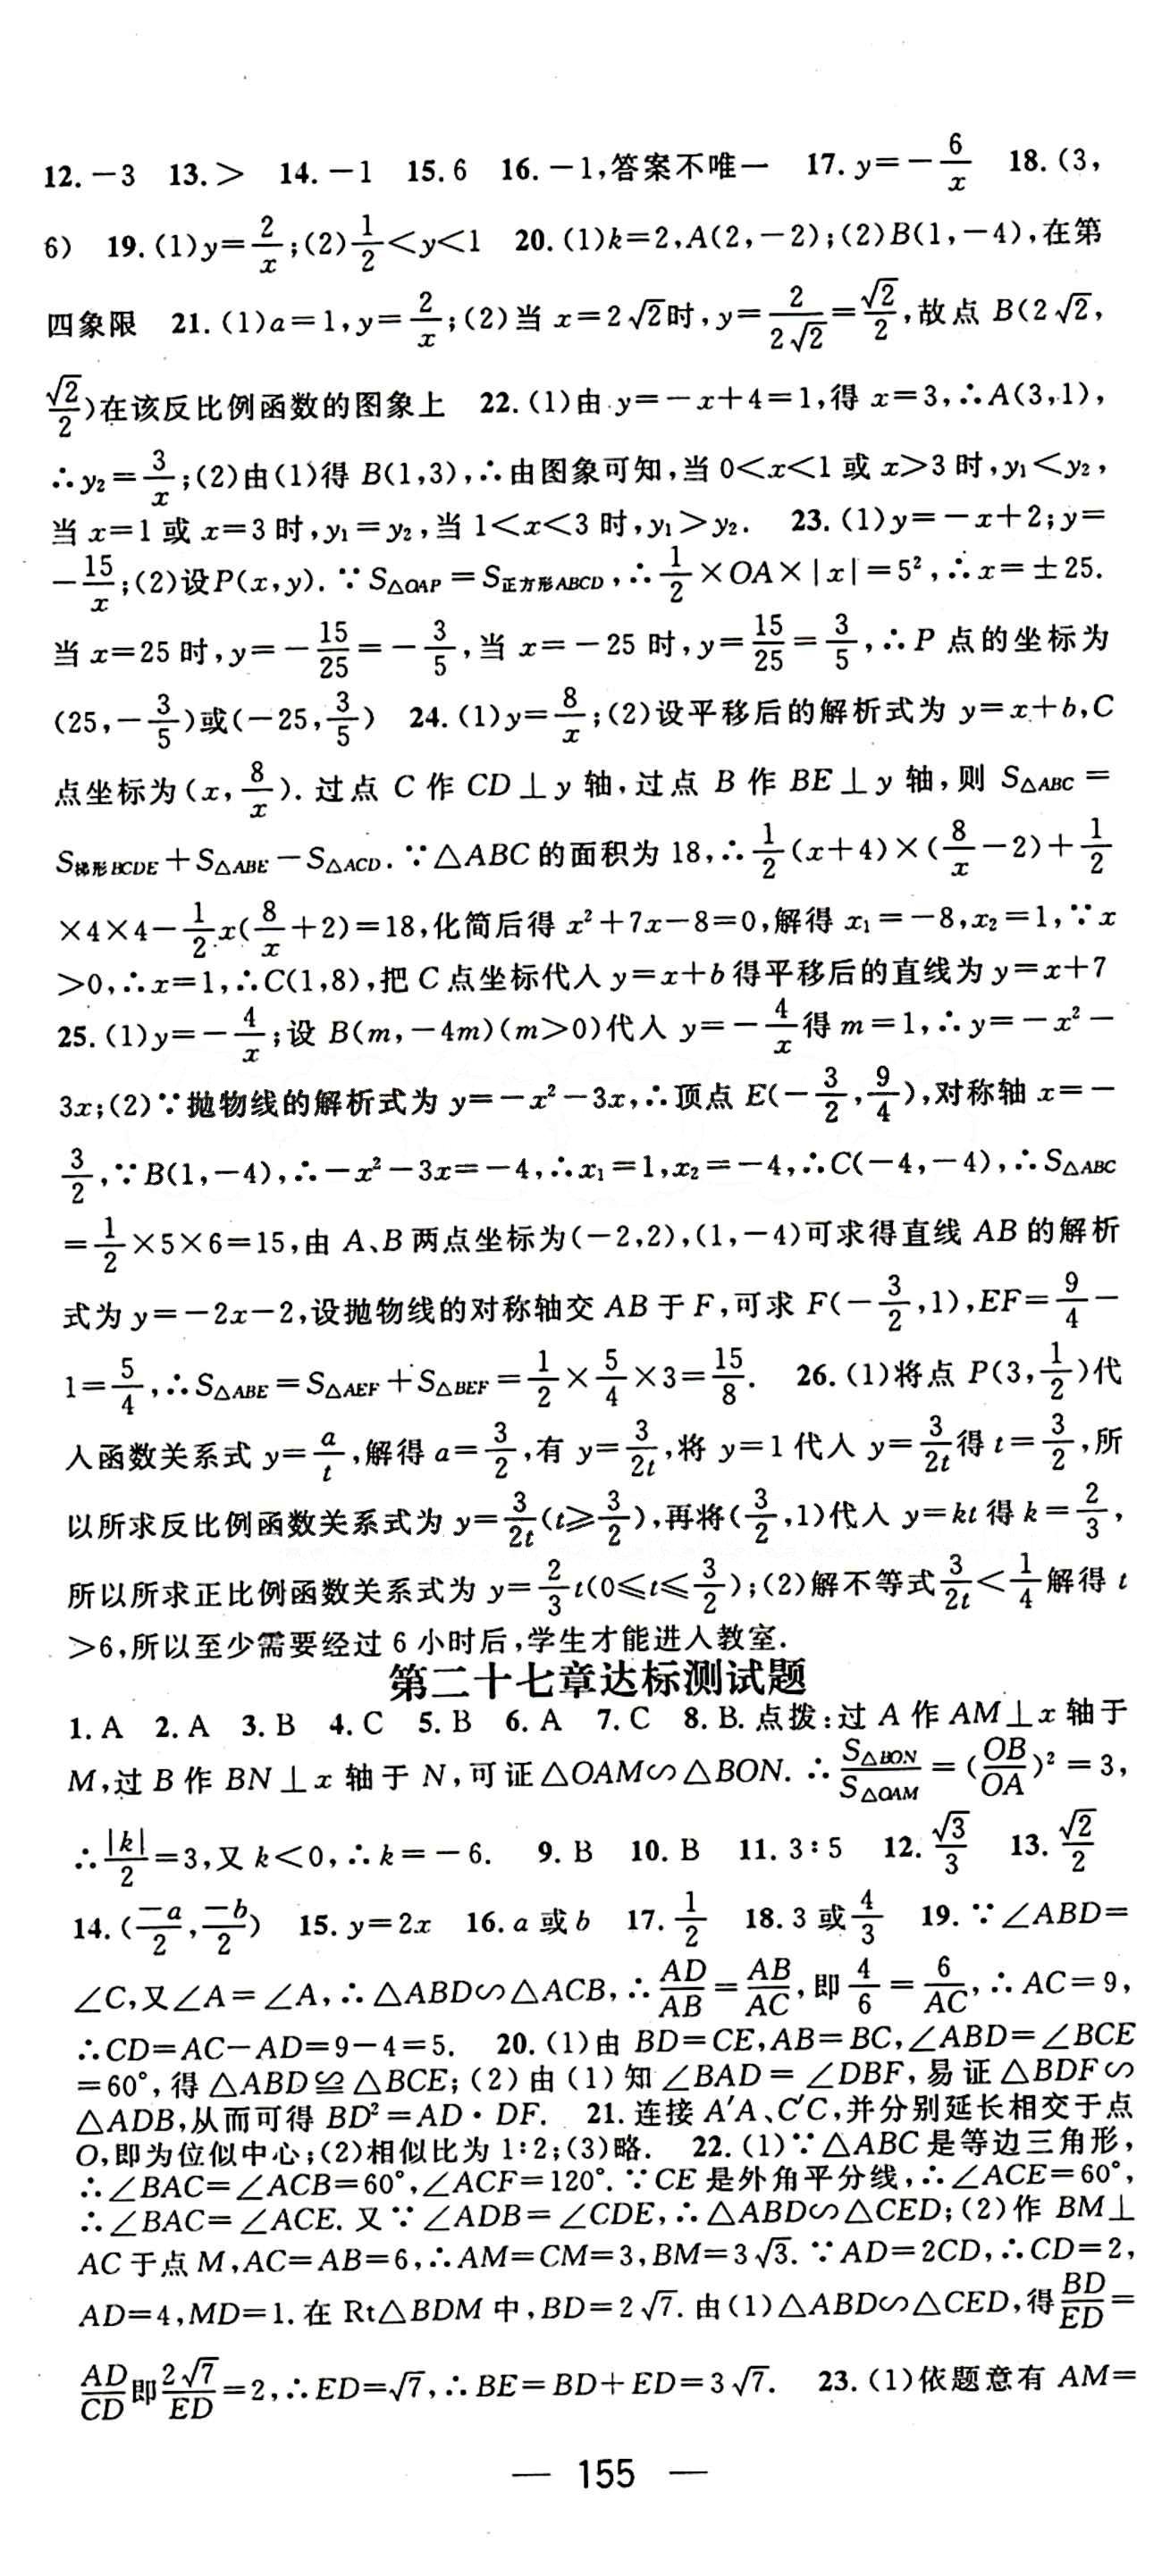 12. －3　13. ＞　14. －1　15. 6　16. －1,答案不唯一　17. y＝－6/x　18. (3,
6)　19. (1)y＝2/x;(2)1/2＜y＜1　20. (1)k＝2,A(2,－2);(2)B(1,－4),在第
四象限　21. (1)a＝1,y＝2/x;(2)当 x＝2√2时,y＝2/(2√2)＝√2/2,故点 B(2√2,
√2/2)在该反比例函数的图象上　22. (1)由 y＝－x＋4＝1,得 x＝3,∴A(3,1),
∴y₂＝3/x;(2)由(1)得 B(1,3),∴由图象可知,当 0＜x＜1 或 x＞3 时,y₁＜y₂,
当 x＝1 或 x＝3 时,y₁＝y₂,当 1＜x＜3 时,y₁＞y₂.　23. (1)y＝－x＋2;y＝
－15/x;(2)设P(x,y).∵S△OAP＝S正方形ABCD,∴1/2×OA×|x|＝5²,∴x＝±25.
当 x＝25 时,y＝－15/25＝－3/5,当 x＝－25 时,y＝15/25＝3/5,∴P 点的坐标为
(25,－3/5)或(－25,3/5)　24. (1)y＝8/x;(2)设平移后的解析式为 y＝x＋b,C
点坐标为(x,8/x).过点 C 作 CD⊥y 轴,过点 B 作 BE⊥y 轴,则 S△ABC＝
S梯形BCDE＋S△ABE－S△ACD.∵△ABC的面积为 18,∴1/2(x＋4)×(8/x－2)＋1/2
×4×4－1/2x(8/x＋2)＝18,化简后得 x²＋7x－8＝0,解得 x₁＝－8,x₂＝1,∵x
＞0,∴x＝1,∴C(1,8),把 C 点坐标代入 y＝x＋b 得平移后的直线为 y＝x＋7
25. (1)y＝－4/x;设 B(m,－4m)(m＞0)代入 y＝－4/x得 m＝1,∴y＝－x²－
3x;(2)∵抛物线的解析式为 y＝－x²－3x,∴顶点 E(－3/2,9/4),对称轴 x＝－
3/2,∵B(1,－4),∴－x²－3x＝－4,∴x₁＝1,x₂＝－4,∴C(－4,－4),∴S△ABC
＝1/2×5×6＝15,由 A、B 两点坐标为(－2,2),(1,－4)可求得直线 AB 的解析
式为 y＝－2x－2,设抛物线的对称轴交 AB 于 F,可求 F(－3/2,1),EF＝9/4－
1＝5/4,∴S△ABE＝S△AEF＋S△BEF＝1/2×5/4×3＝15/8.　26. (1)将点 P(3,1/2)代
入函数关系式 y＝a/t,解得 a＝3/2,有 y＝3/2t,将 y＝1 代入 y＝3/2t得 t＝3/2,所
以所求反比例函数关系式为 y＝3/2t(t⩾3/2),再将(3/2,1)代入 y＝kt 得 k＝2/3,
所以所求正比例函数关系式为 y＝2/3t(0⩽t⩽3/2);(2)解不等式3/2t＜1/4解得 t
＞6,所以至少需要经过 6 小时后,学生才能进入教室.
第二十七章达标测试题
1. A　2. A　3. B　4. C　5. B　6. A　7. C　8. B. 点拨:过 A 作 AM⊥x 轴于
M,过 B 作 BN⊥x 轴于 N,可证△OAM∽△BON. ∴S△BON/S△OAM＝(OB/OA)²＝3,
∴|k|/2＝3,又 k＜0,∴k＝－6.　9. B　10. B　11. 3∶5　12. √3/3　13. √2/2
14. (－a/2,－b/2)　15. y＝2x　16. a 或 b　17. 1/2　18. 3 或4/3　19. ∵∠ABD＝
∠C,又∠A＝∠A,∴△ABD∽△ACB,∴AD/AB＝AB/AC,即4/6＝6/AC,∴AC＝9,
∴CD＝AC－AD＝9－4＝5.　20. (1)由 BD＝CE,AB＝BC,∠ABD＝∠BCE
＝60°,得△ABD≌△BCE;(2)由(1)知∠BAD＝∠DBF,易证△BDF∽
△ADB,从而可得 BD²＝AD·DF.　21. 连接 A′A、C′C,并分别延长相交于点
O,即为位似中心;(2)相似比为 1∶2;(3)略.　22. (1)∵△ABC是等边三角形,
∴∠BAC＝∠ACB＝60°,∠ACF＝120°.∵CE是外角平分线,∴∠ACE＝60°,
∴∠BAC＝∠ACE. 又∵∠ADB＝∠CDE,∴△ABD∽△CED;(2)作 BM⊥
AC于点M,AC＝AB＝6,∴AM＝CM＝3,BM＝3√3.∵AD＝2CD,∴CD＝2,
AD＝4,MD＝1. 在 Rt△BDM 中,BD＝2√7. 由(1)△ABD∽△CED,得BD/ED＝
AD/CD即2√7/ED＝2,∴ED＝√7,∴BE＝BD＋ED＝3√7.　23. (1)依题意有 AM＝
— 155 —